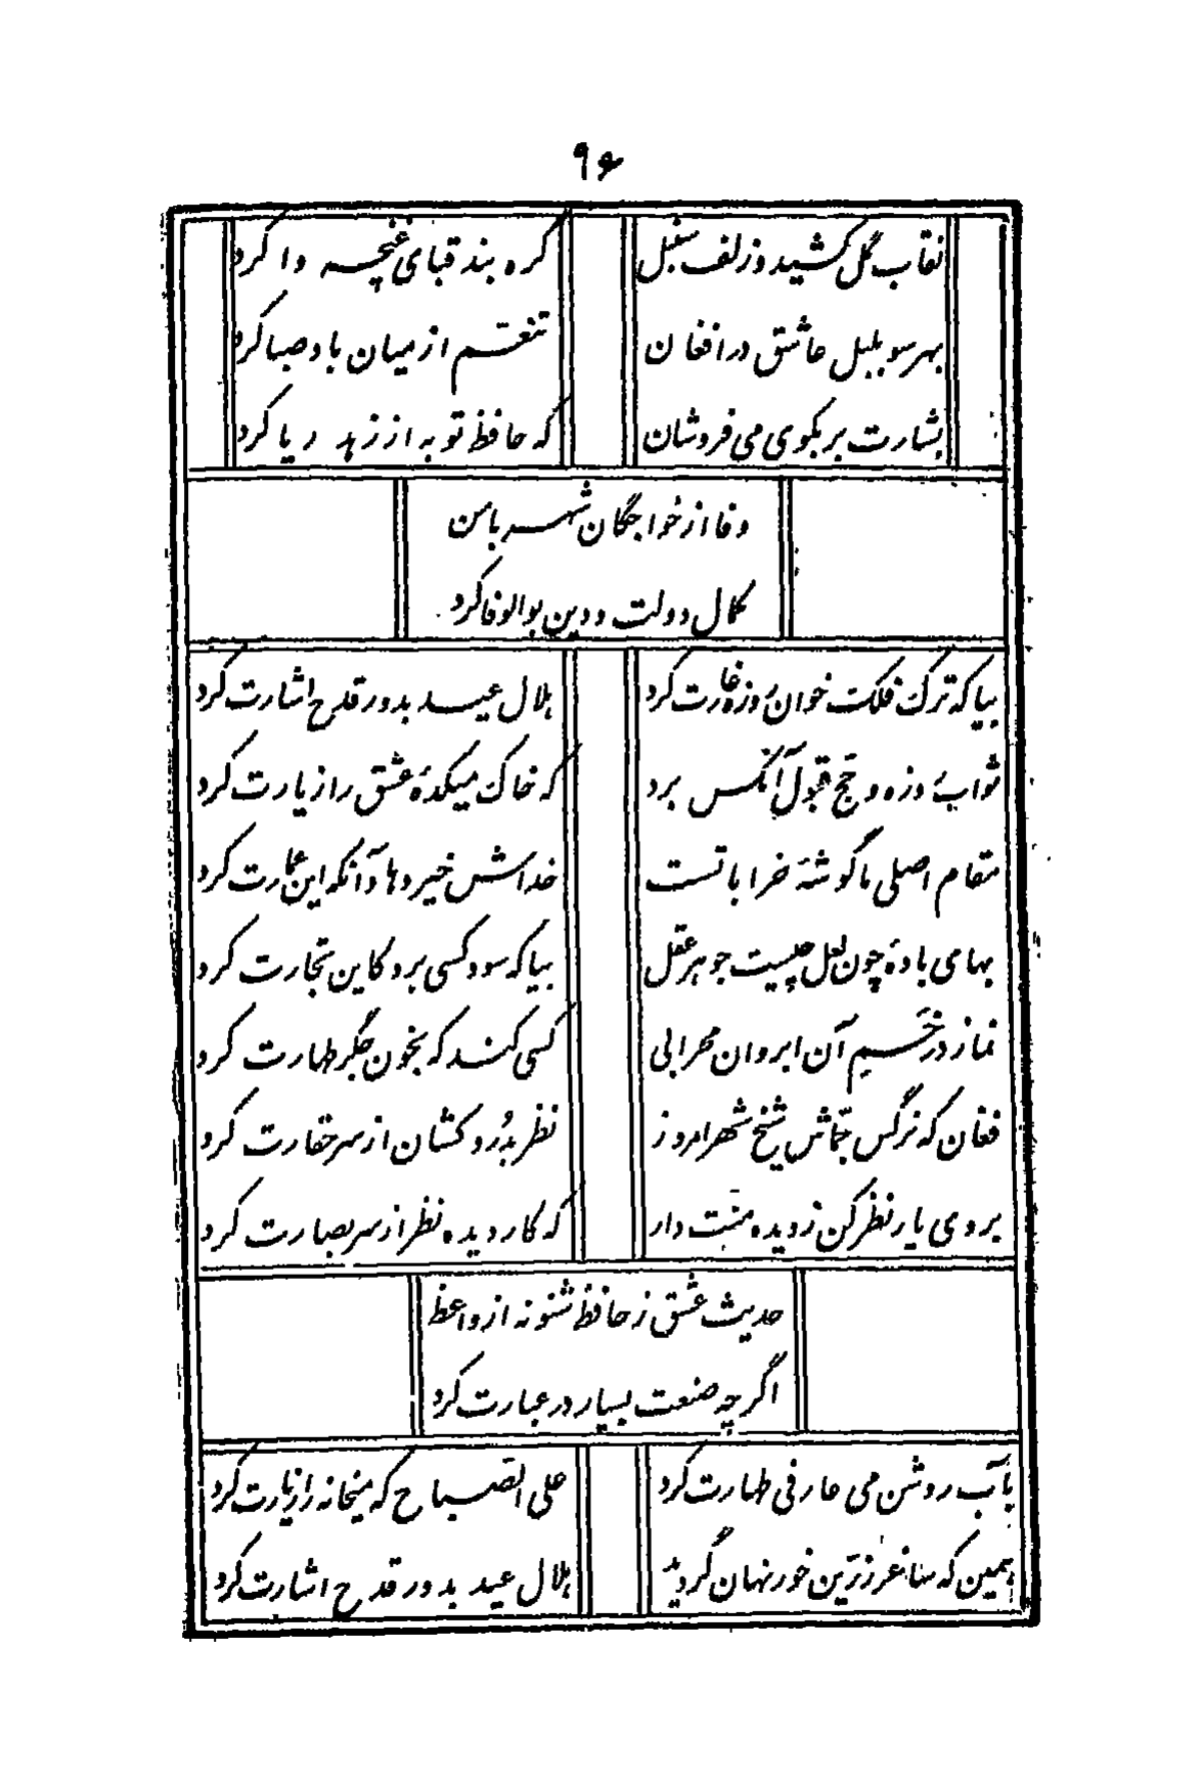 ۹۶
نقاب گل کشید و زلف سنبل
گره بند قبای غنچه وا کرد
بهر سو بلبل عاشق در افغان
تنعّم از میان باد صبا کرد
بشارت بر بکوی می فروشان
که حافظ توبه از زهد ریا کرد
وفا از خواجگان شهر با من
کمال دولت و دین بوالوفا کرد
بیا که ترک فلک خوان روزه غارت کرد
هلال عید بدور قدح اشارت کرد
ثواب روزه و حج قبول آنکس برد
که خاک میکدهٔ عشق را زیارت کرد
مقام اصلی ما گوشهٔ خراباتست
خداش خیر دهاد آنکه این عمارت کرد
بهای بادهٔ چون لعل چیست جوهر عقل
بیا که سود کسی برد کاین تجارت کرد
نماز در خم آن ابروان محرابی
کسی کند که بخون جگر طهارت کرد
فغان که نرگس جمّاش شیخ شهر امروز
نظر بدُرد کشان از سر حقارت کرد
بروی یار نظر کن ز دیده منّت دار
که کار دیده نظر از سر بصارت کرد
حدیث عشق ز حافظ شنو نه از واعظ
اگر چه صنعت بسیار در عبارت کرد
بآب روشن می عارفی طهارت کرد
علی الصّباح که میخانه را زیارت کرد
همین که ساغر زرّین خور نهان گردید
هلال عید بدور قدح اشارت کرد